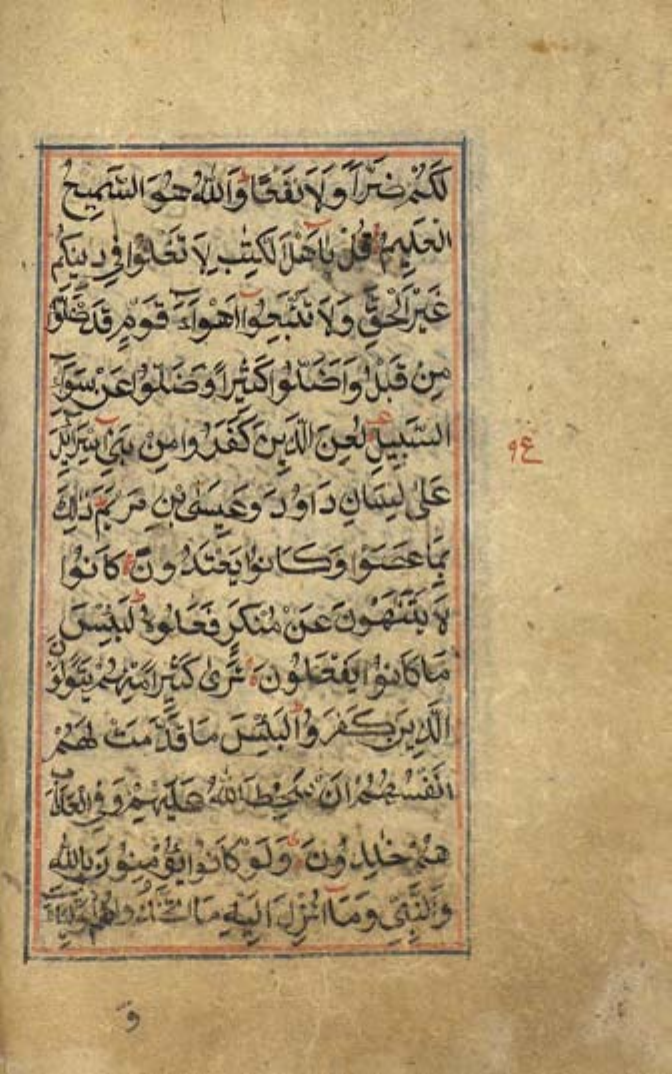 لَكُمْ ضَرًّا وَلَا نَفْعًا وَاللّٰهُ هُوَ السَّمِيعُ
الْعَلِيمُ قُلْ يٰاَهْلَ الْكِتٰبِ لَا تَغْلُوا فِي دِينِكُمْ
غَيْرَ الْحَقِّ وَلَا تَتَّبِعُوا اَهْوَاءَ قَوْمٍ قَدْ ضَلُّوا
مِنْ قَبْلُ وَاَضَلُّوا كَثِيرًا وَضَلُّوا عَنْ سَوَاءِ
السَّبِيلِ لُعِنَ الَّذِينَ كَفَرُوا مِنْ بَنِي اِسْرَائِلَ
عَلٰى لِسَانِ دَاوُدَ وَعِيسَى بْنِ مَرْيَمَ ذٰلِكَ
بِمَا عَصَوْا وَكَانُوا يَعْتَدُونَ كَانُوا
لَا يَتَنَهَوْنَ عَنْ مُنْكَرٍ فَعَلُوهُ لَبِئْسَ
مَا كَانُوا يَفْعَلُونَ تَرٰى كَثِيرًا مِنْهُمْ يَتَوَلَّوْنَ
الَّذِينَ كَفَرُوا لَبِئْسَ مَا قَدَّمَتْ لَهُمْ
اَنْفُسُهُمْ اَنْ سَخِطَ اللّٰهُ عَلَيْهِمْ وَفِي الْعَذَابِ
هُمْ خٰلِدُونَ وَلَوْ كَانُوا يُؤْمِنُونَ بِاللّٰهِ
وَالنَّبِيِّ وَمَا اُنْزِلَ اِلَيْهِ مَا اتَّخَذُوهُمْ اَوْلِيَاءَ
و